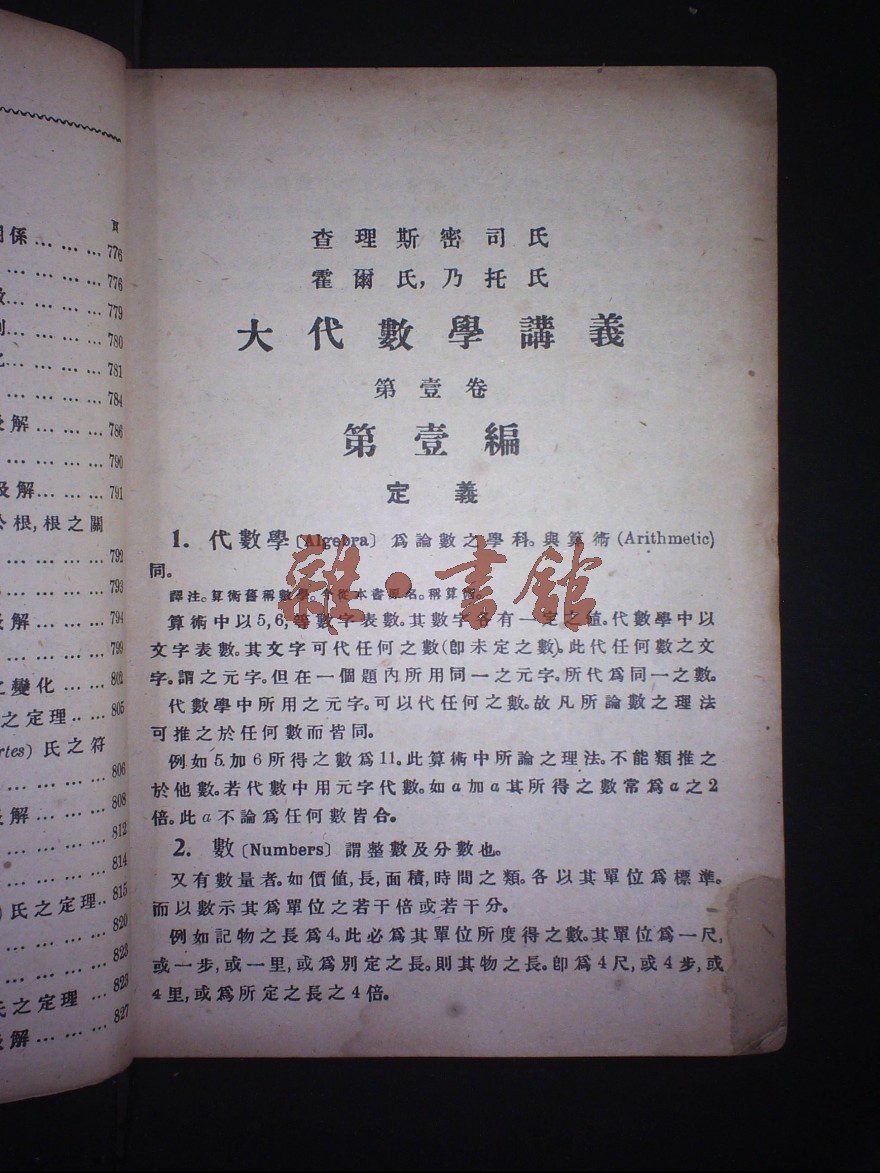 頁
係 … … … 776
… … … 776
… … … 779
… … … 780
… … … 781
… … … 784
解 … … … 786
… … … 790
及解 … … … 791
根,根之關
… … … 792
… … … 793
解 … … … 794
… … … 799
之變化 … … 802
之定理 … … 805
rtes) 氏之符
… … … 806
解 … … … 808
… … … 812
… … … 814
氏之定理.. 815
… … … 820
… … … 823
氏之定理 … 823
解 … … … 827
查理斯密司氏
霍爾氏,乃托氏
大代數學講義
第壹卷
第壹編
定義
1. 代數學〔Algebra〕爲論數之學科。與算術 (Arithmetic)
同。
譯注。算術舊稱數學。今從本書原名。稱算術。
算術中以5,6,等數字表數。其數字各有一定之値。代數學中以
文字表數。其文字可代任何之數(卽未定之數)。此代任何數之文
字。謂之元字。但在一個題內所用同一之元字。所代爲同一之數。
代數學中所用之元字。可以代任何之數。故凡所論數之理法
可推之於任何數而皆同。
例如5加6所得之數爲11。此算術中所論之理法。不能類推之
於他數。若代數中用元字代數。如a加a其所得之數常爲a之2
倍。此a不論爲任何數皆合。
2. 數〔Numbers〕謂整數及分數也。
又有數量者。如價値,長,面積,時間之類。各以其單位爲標準。
而以數示其爲單位之若干倍或若干分。
例如記物之長爲4。此必爲其單位所度得之數。其單位爲一尺,
或一步,或一里,或爲別定之長。則其物之長。卽爲4尺,或4步,或
4里,或爲所定之長之4倍。
雜·書館